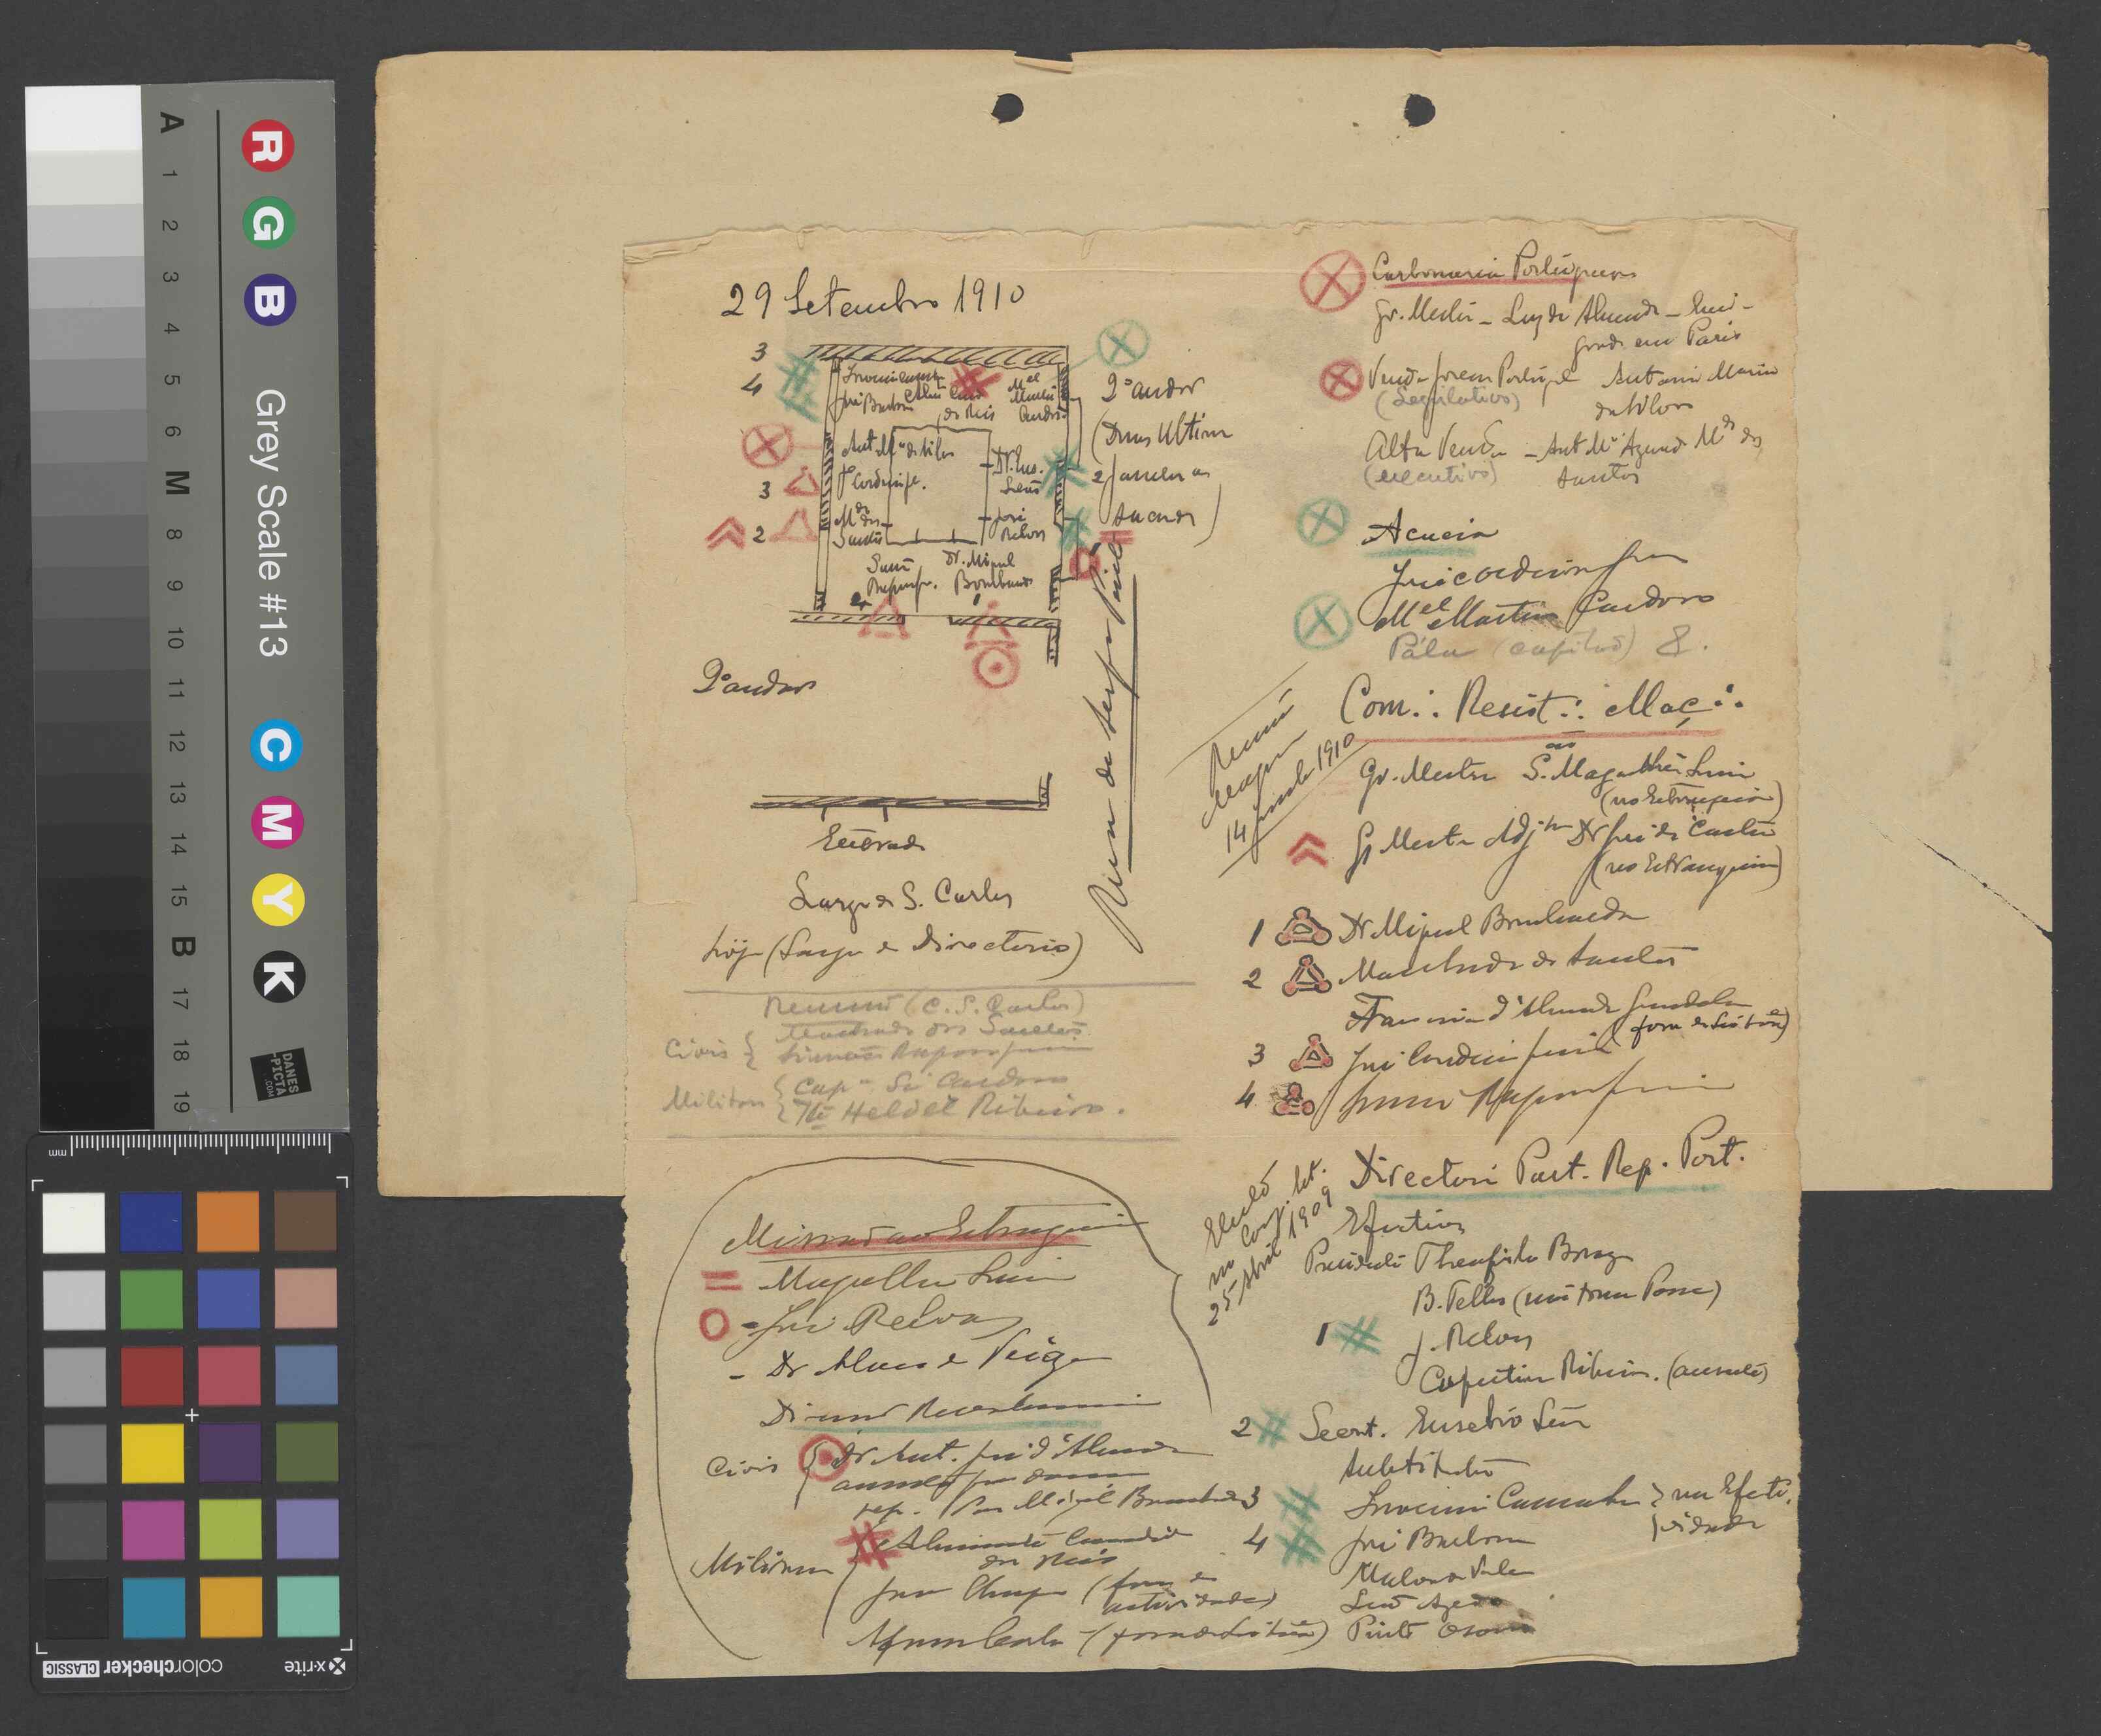 29 Setembro 1910
3
4
Innocencio Camacho
José Barbosa
Alm. Cand.
dos Reis
Mel
Martins
Cardoso
Ant. Ma da Silva
3
J Cordeiro Jr.
2
Mdo dos
Santos
Dr. Eus.
Leão
José
Relvas
Simões
Raposo Jr.
Dr. Miguel
Bombarda
2º andar
(Duas Ultimas
2 janelas as
sacadas)
2º andar
Rua de Serpa Pinto
Entrada
Largo de S. Carlos
hoje (Largo do Directorio)
Reunião (C. S. Carlos)
Civis
Machado dos Santos
Simões Raposo Junior
Militares
Capm Sá Cardoso
Te Helder Ribeiro.
Missão ao Estrangeiro
Magalhães Lima
José Relvas
- Dr Alves da Veiga
Civis
Dr Ant. José d'Almeida
rep. por Miguel Bombarda
Militares
Almirante Candido
dos Reis
João Chagas (fora da
actividade)
Afonso Costa - (fora de Lisboa)
Carbonaria Portuguesa
Gr. Mestre - Luz de Almeida - Emi-
grado em Paris
Venda Jovem Portugal Antonio Maria
(Legislativo) da Silva
Alta Venda - Ant Ma Azevedo Mdo dos
(executivo) Santos
Acacia
José Cordeiro Jun
Mel Martins Cardoso
Pála (capitão) 8.
Reunião
Maçon
14 junho 1910
Com∴ Resist∴ Maç∴
Gr. Mestre S. Magalhães Lima
(no Estrangeiro)
Gr Mestre Adjto Dr José de Castro
(no Estrangeiro)
1 Dr Miguel Bombarda
2 Machado dos Santos
Francisco d'Almeida Grandela
(fora de Lisboa)
3 José Cordeiro Junior
4 Simões Raposo Junior
Eleito
no Cong. Set.
25 Abril 1909
Directorio Part. Rep. Port.
Efectivos
Presidente Theophilo Braga
B. Telles (não toma Posse)
1 J. Relvas
Cupertino Ribeiro. (ausente)
2 Secret. Eusebio Leão
Substitutos
3 Innocencio Camacho
4 José Barbosa
na Efecti-
vidade
Malva do Vale
Leão Azedo
Pinto Osorio
A 1 2 3 4 5 6 M 8 9 10 11 12 13 14 15 B 17 18 19
R G B
Grey Scale #13
C M Y K
DANES
-PICTA
.COM
mm
x-rite
colorchecker CLASSIC